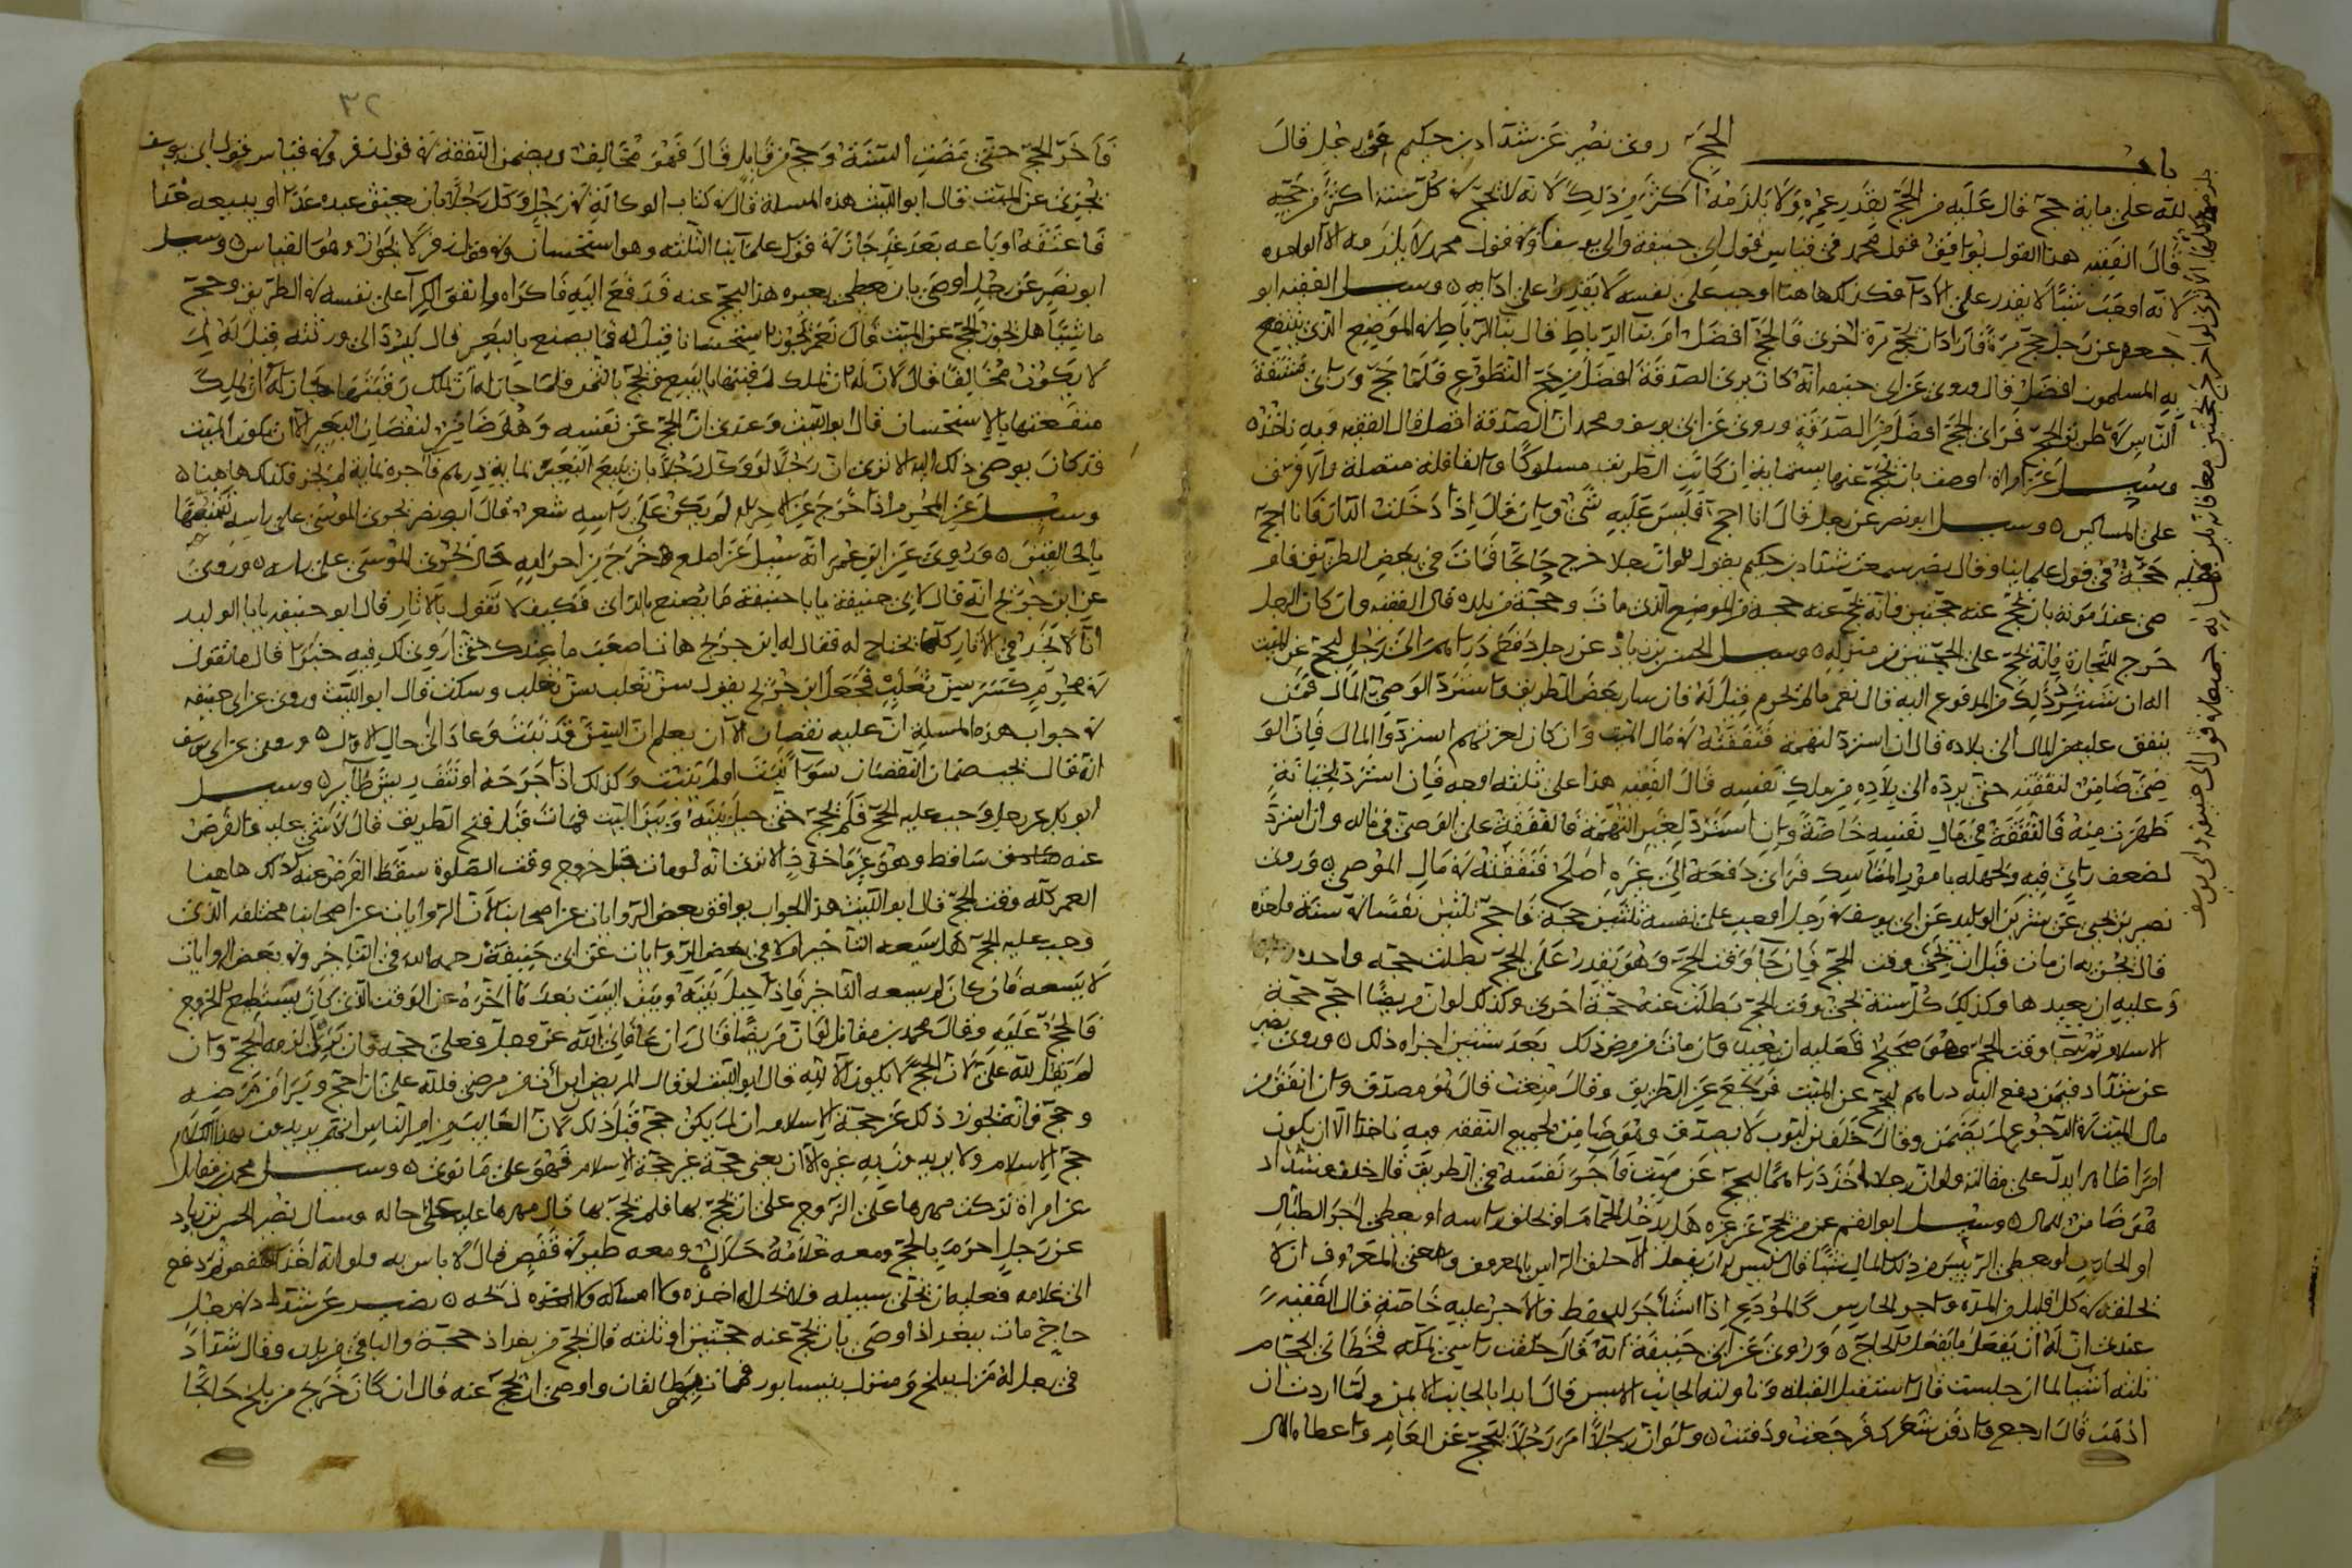 باب الحج روى نصر عن شداد بن حكيم عن رجل قال
لله علي مائة حج قال عليه من الحج بقدر عمره ولا يلزمه اكثر من ذلك لانه لا يحج في كل سنة اكثر من حجة
قال الفقيه هذا القول يوافق قول محمد في قياس قول ابي حنيفة وابي يوسف وفي قول محمد لا يلزمه الا الواحدة
لانه اوجب شيئا لا يقدر على الادا فكذلك هاهنا اوجب على نفسه لا يقدر على ادايه وسيل الفقيه ابو
جعفر عن رجل حج مرة فاراد ان يحج مرة اخرى فالحج افضل ام بنا الرباط قال بنا الرباط في الموضع الذي ينتفع
به المسلمون افضل قال وروي عن ابي حنيفة انه كان يرى الصدقة افضل من حج التطوع فلما حج وراى مشقة
الناس في طريق الحج فراى الحج افضل من الصدقة وروي عن ابي يوسف ومحمد ان الصدقة افضل قال الفقيه وبه ناخذ
وسيل عن امراة اوصت بان يحج عنها بستماية ان كانت الطريق مسلوكا والقافلة متصلة والا فرق
على المساكين وسيل ابو نصر عن رجل قال انا احج قال ليس عليه شي وان قال اذا دخلت الدار فانا احج
حجة في قول علماينا وقال نصر سمعت شداد بن حكيم يقول لو ان رجلا خرج حاجا فمات في بعض الطريق فاو
صى عند موته بان يحج عنه حجتين فانه يحج عنه حجة من الموضع الذي مات وحجة من بلده قال الفقيه وان كان الرجل
خرج للتجارة فانه يحج على الحجتين من منزله وسيل الحسن بن زياد عن رجل دفع دراهم الى رجل ليحج عن الميت
اله ان يسترد ذلك من المدفوع اليه قال نعم ما لم يحرم قيل له فان سار بعض الطريق واسترد الوصي المال فمن
ينفق عليه من المال الى بلاده قال ان استرد لتهمة فنفقته في مال الميت وان كان لغير تهم استردوا المال فان الو
صي ضامن لنفقته حتى يرده الى بلاده من ملك نفسه قال الفقيه هذا على ثلثة اوجه فان استرد لخيانة
ظهرت منه فالنفقة في مال نفسه خاصة وان استرد لغير التهمة فالنفقة على الوصي في ماله وان استرد
لضعف راى فيه ولجهله بامور المناسك فراى دفعه الى غيره اصلح فنفقته في مال الموصي وروى
نصير بن يحيى عن بشر بن الوليد عن ابي يوسف في رجل اوجب على نفسه ثلثين حجة فاحج ثلثين نفسا في سنة واحدة
قال يجزيه ان مات قبل ان يجي وقت الحج فان جا وقت الحج وهو يقدر على الحج بطلت حجة واحدة
وعليه ان يعيدها وكذلك كل سنة يجي وقت الحج بطلت عنه حجة اخرى وكذلك لو ان مريضا احج حجة
الاسلام ثم جا وقت الحج وهو صحيح فعليه ان يعيد وان مات من مرضه ذلك بعد سنين اجزاه ذلك وروى نصير
عن شداد فيمن دفع اليه دراهم ليحج عن الميت فرجع عن الطريق وقال منعت قال هو مصدق وان انفق من
مال الميت في الرجوع لم يضمن وقال خلف بن ايوب لا يصدق وهو ضامن لجميع النفقة وبه ناخذ الا ان يكون
امرا ظاهرا يدل على مقالته ولو ان رجلا اخذ دراهما ليحج عن ميت فاجر نفسه في الطريق قال خلف وشداد
هو ضامن للمال وسيل ابو القسم عن من يحج عن غيره هل يدخل الحمام او يحلق راسه او يعطي اجر الطبال
او الحارس او يعطي الرئيس من ذلك المال شيئا قال ليس له ان يفعل الا حلق الراس بالمعروف ومعنى المعروف ان لا
يحلقه في كل قليل من المدة واجر الحارس كالمودع اذا استأجر للحفظ فالاجر عليه خاصة قال الفقيه
عندي ان له ان يفعل ما يفعله الحاج وروي عن ابي حنيفة انه قال حلقت راسي بمكة فخطاني الحجام
ثلثة اشيا لما ان جلست قال استقبل القبلة وناولته الجانب الايسر قال ابدا بالجانب الايمن ولما اردت ان
اذهب قال ارجع وادفن شعرك فرجعت ودفنت ولو ان رجلا امر رجلا ليحج عن العام واعطاه المال
٣٢
فاخر الحج حتى مضت السنة وحج من قابل قال فهو مخالف ويضمن النفقة في قول زفر وفي قياس قول ابي يوسف
يجزئ عن الميت قال ابو الليث هذه المسلة قال في كتاب الوكالة في رجل وكل رجلا بان يعتق عبده غدا او يبيعه غدا
فاعتقه او باعه بعد غد جاز في قول علماينا الثلثة وهو استحسان وفي قول زفر لا يجوز وهو القياس وسيل
ابو نصر عن رجل اوصى بان يعطى بعيره هذا ليحج عنه فدفع اليه فاكراه وانفق الكرا على نفسه في الطريق وحج
ماشيا هل يجوز الحج عن الميت قال نعم يجوز استحسانا قيل له فما يصنع بالبعير قال يرد الى ورثته قيل له لم
لا يكون مخالفا قال لان له ان يملك رقبتها بالبيع ويحج بالثمن فلما جاز له ان يملك رقبتها جاز له ان يملك
منفعتها بالاستحسان قال ابو الليث وعندي ان الحج عن نفسه وهو ضامن لنقصان البعير الا ان يكون الميت
قد كان يوصي ذلك اليه الا ترى ان رجلا لو وكل رجلا بان يبيع البعير بماية درهم فآجره بماية لم يجز فكذلك هاهنا
وسيل عن المحرم اذا خرج عن الاحرام ولم يكن على راسه شعر قال ابو نصر يجري الموسى على راسه تشبيها
بالحالقين وروي عن ابن عمر انه سيل عن اصلع خرج من احرامه قال يجري الموسى على راسه وروي
عن ابن جريج انه قال لابي حنيفة يابا حنيفة ما يصنع بالراي فكيف لا تقول بالاثار قال ابو حنيفة يابا الوليد
انا لا نجد في الاثار كلما نحتاج له فقال له ابن جريج هات اصعب ما عندك حتى اروي لك فيه خبرا قال ما تقول
في محرم كسر سن ثعلب فجعل ابن جريج يقول سن ثعلب سن ثعلب وسكت قال ابو الليث وروي عن ابي حنيفة
في جواب هذه المسلة ان عليه نقصان الا ان يعلم ان السن قد نبتت وعاد الى حال الاول وروي عن ابي يوسف
انه قال يجب ضمان النقصان سوا نبتت او لم تنبت وكذلك اذا جرحه او نتف ريش طاير وسيل
ابو بكر عن رجل وجب عليه الحج فلم يحج حتى حيل بينه وبين البيت فمات قبل فتح الطريق قال لا شي عليه والفرض
عنه ساقط وهو غير ماخوذ الا ترى انه لو مات قبل خروج وقت الصلوة سقط الفرض عنه كذلك هاهنا
العمر كله وقت الحج قال ابو الليث هذا الجواب يوافق بعض الروايات عن اصحابنا لان الروايات عن اصحابنا مختلفة الذي
وجب عليه الحج هل يسعه التاخير ام لا في بعض الروايات عن ابي حنيفة رحمه الله في التاخير وفي بعض الروايات
لا يسعه فان كان لم يسعه التاخير فاذا حيل بينه وبين البيت بعد ما اخره عن الوقت الذي كان يستطيع الخروج
فالحج عليه وقال محمد بن مقاتل لو ان مريضا قال ان عافاني الله عز وجل فعلي حجة فان برئ لزمه الحج وان
لم يقل لله علي لان الحج لا يكون الا لله قال ابو الليث لو قال المريض ان برأت من مرضي فلله علي ان احج وبرا من مرضه
وحج فانه يجوز ذلك عن حجة الاسلام ان لم يكن حج قبل ذلك لان الغالب من امر الناس انهم يريدون بهذا الكلام
حج الاسلام ولا يريدون به غيره الا ان يعني حجة غير حجة الاسلام فهو على ما نوى وسيل محمد بن مقاتل
عن امراة تركت مهرها على الزوج على ان يحج بها فلم يحج بها قال مهرها عليه على حاله وسال نصر الحسن بن زياد
عن رجل احرم بالحج ومعه غلامه حلال ومعه طير في قفص قال لا باس به ولو انه اخذ القفص ثم دفع
الى غلامه فعليه ان يخلي سبيله ولا يحل له اخذه ولا امساكه ذبحه نصير عن شداد في رجل
حاج مات ببغداذ اوصى بان يحج عنه حجتين او ثلثه قال يحج من بغداذ حجة والباقي من بلده وقال شداد
في رجل له منزل ببلخ ومنزل بنيسابور فمات بطالقان واوصى ان يحج عنه قال ان كان خرج من بلخ حاجا